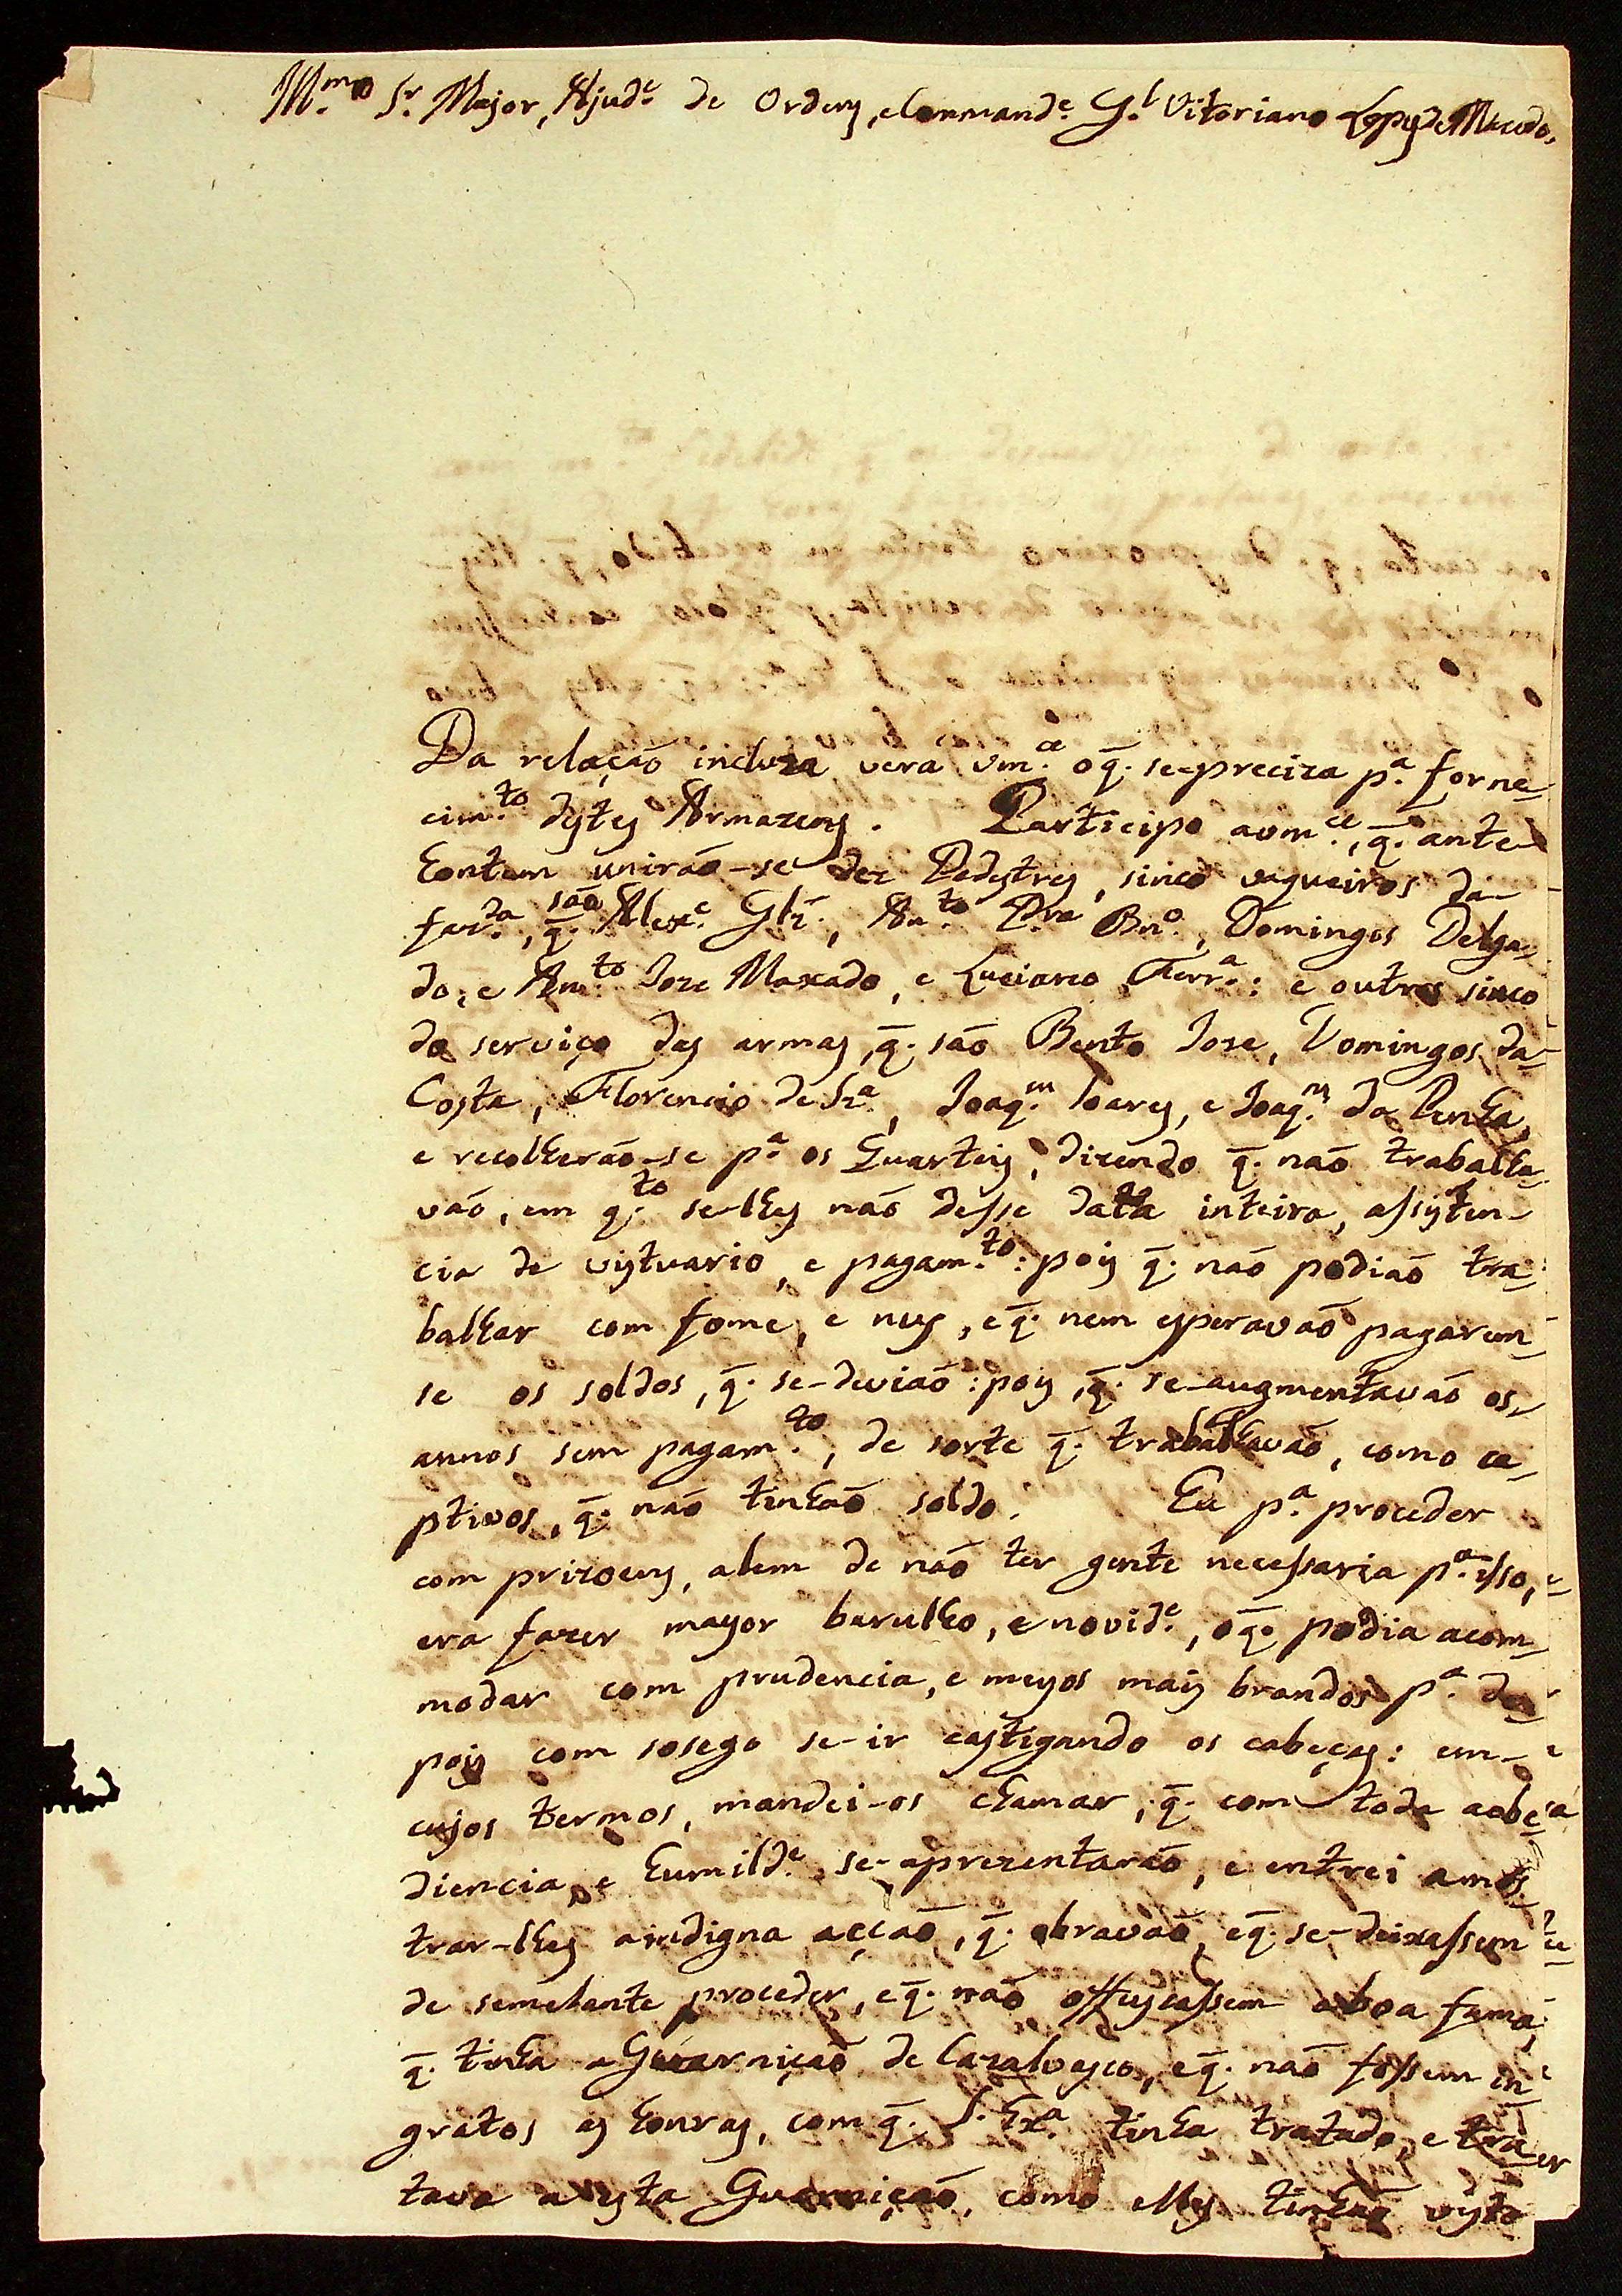 Ill.mo Sr. Major, Ajud.e de Ordens, e Command.e G.l Vitoriano Lopes de Macedo,
Da relação incluza verá Vm.ce o q̃. se-preciza p.a forne-
cim.to destes Armazens. Participo a vm.ce, q̃. ante
hontem unirão-se dez Pedestres, sinco vaqueiros da-
faz.da, q̃. são Alex.e Glz̃., An.to Pr.a Bn.o, Domingos Delga-
do, e An.to Joze Maxado, e Luciano Ferr.a: e outros sinco
do serviço das armas, q̃. são Bento Jose, Domingos da-
Costa, Florencio de Sz.a, Joaq.m Soares, e Joaq.m da Penha,
e recolherão-se p.a os Quarteis, dizendo q̃. não trabalha-
vão, em q.to se-lhes não desse data inteira, assisten-
cia de vistuario, e pagam.to: pois q̃. não podião tra-
balhar com fome, e nus, e q̃. nem esperavão pagarem-
se os soldos, q̃. se-devião: pois, q̃. se-augmentavão os-
annos sem pagam.to, de sorte q̃. trabalhavão, como ca-
ptivos, q̃. não tinhão soldo. Eu p.a proceder
com prizoens, alem de não ter gente necessaria p.a isso,
era fazer mayor barulho, e novid.e, o q̃. podia acom-
modar com prudencia, e meyos mais brandos p.a de-
pois com sosego se-ir castigando os cabeças: em-
cujos termos, mandei-os chamar, q̃. com toda a obe-
diencia, e humild.e se-aprezentarão, e entrei a mos-
trar-lhes a indigna acção, q̃. obravão, e q̃. se-deixassem
de semelhante proceder, e q̃. não offuscassem a boa fama,
q̃. tinha a Guarnição de Cazalvasco, e q̃. não fossem in-
gratos as honras, com q̃. S. Ex.a tinha tratado, e tra-
tava a esta Guarnição, como elles tinhão visto